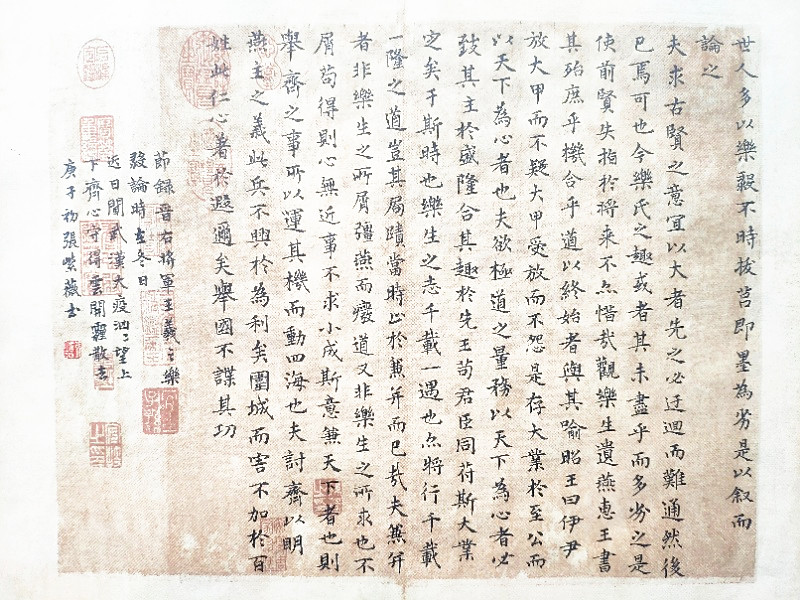 世人多以樂毅不時拔莒即墨為劣是以叙而
論之
夫求古賢之意宜以大者先之必迂迴而難通然後
已焉可也今樂氏之趣或者其未盡乎而多劣之是
使前賢失指於将来不亦惜哉觀樂生遺燕惠王書
其殆庶乎機合乎道以終始者與其喻昭王曰伊尹
放大甲而不疑大甲受放而不怨是存大業於至公而
以天下為心者也夫欲極道之量務以天下為心者必
致其主於盛隆合其趣於先王苟君臣同符斯大業
定矣于斯時也樂生之志千載一遇也亦将行千載
一隆之道豈其局蹟當時止於蕪并而已哉夫蕪并
者非樂生之所屑彊燕而癈道又非樂生之所求也不
屑苟得則心無近事不求小成斯意兼天下者也則
舉齊之事所以運其機而動四海也夫討齊以明
燕主之義此兵不興於為利矣圍城而害不加於百
姓此仁心著於遐邇矣舉國不謀其功
節録晋右将軍王羲之樂
毅論時在冬日
近日間武漢大疫汹汹望上
下齊心守得雲開霾散去
庚子初張紫薇书